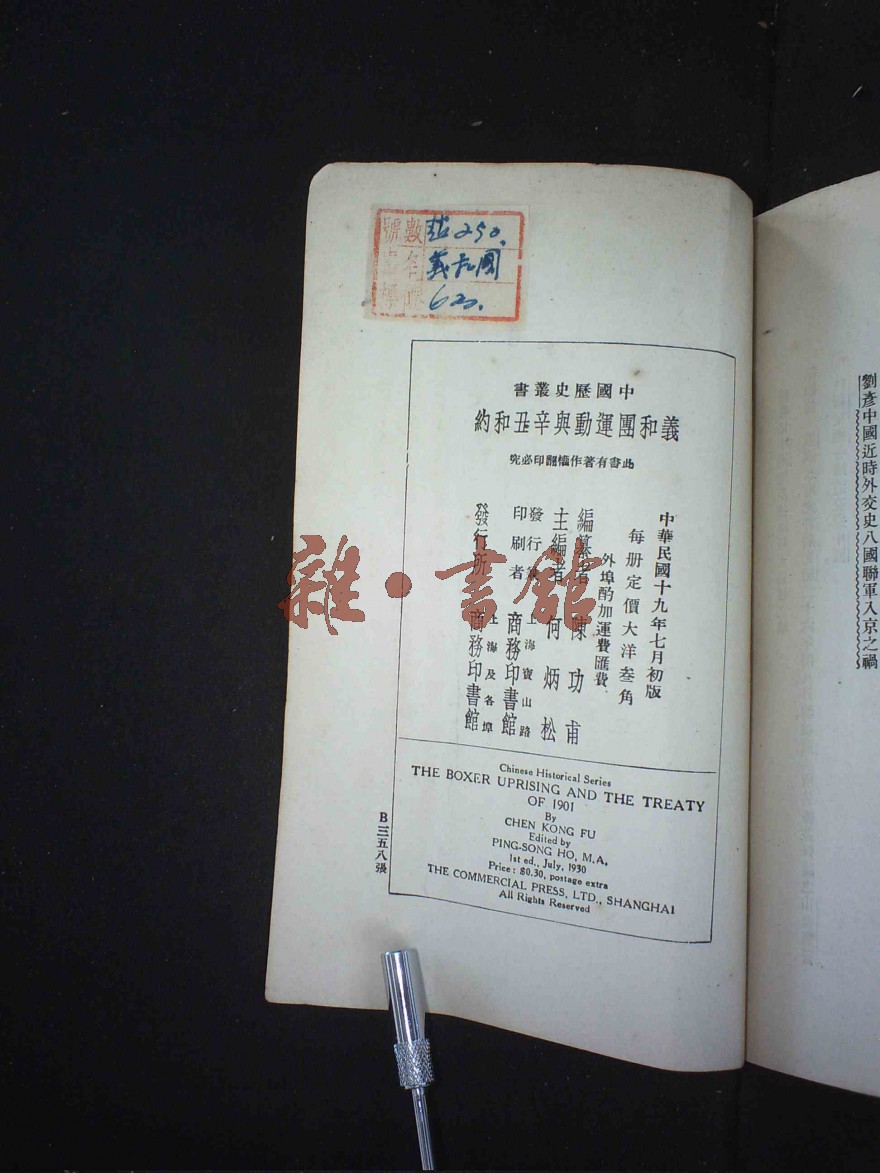 數 越250.
名 義和團
620.
中國歷史叢書
義和團運動與辛丑和約
此書有著作權翻印必究
中華民國十九年七月初版
每册定價大洋叁角
外埠酌加運費匯費
編纂者 陳功甫
主編者 何炳松
發行兼印刷者 上海寶山路 商務印書館
發行所 上海及各埠 商務印書館
Chinese Historical Series
THE BOXER UPRISING AND THE TREATY
OF 1901
By
CHEN KONG FU
Edited by
PING-SONG HO, M.A.
1st ed., July, 1930
Price: $0.30, postage extra
THE COMMERCIAL PRESS, LTD., SHANGHAI
All Rights Reserved
B三五八張
劉彥中國近時外交史八國聯軍入京之禍
雜·書館